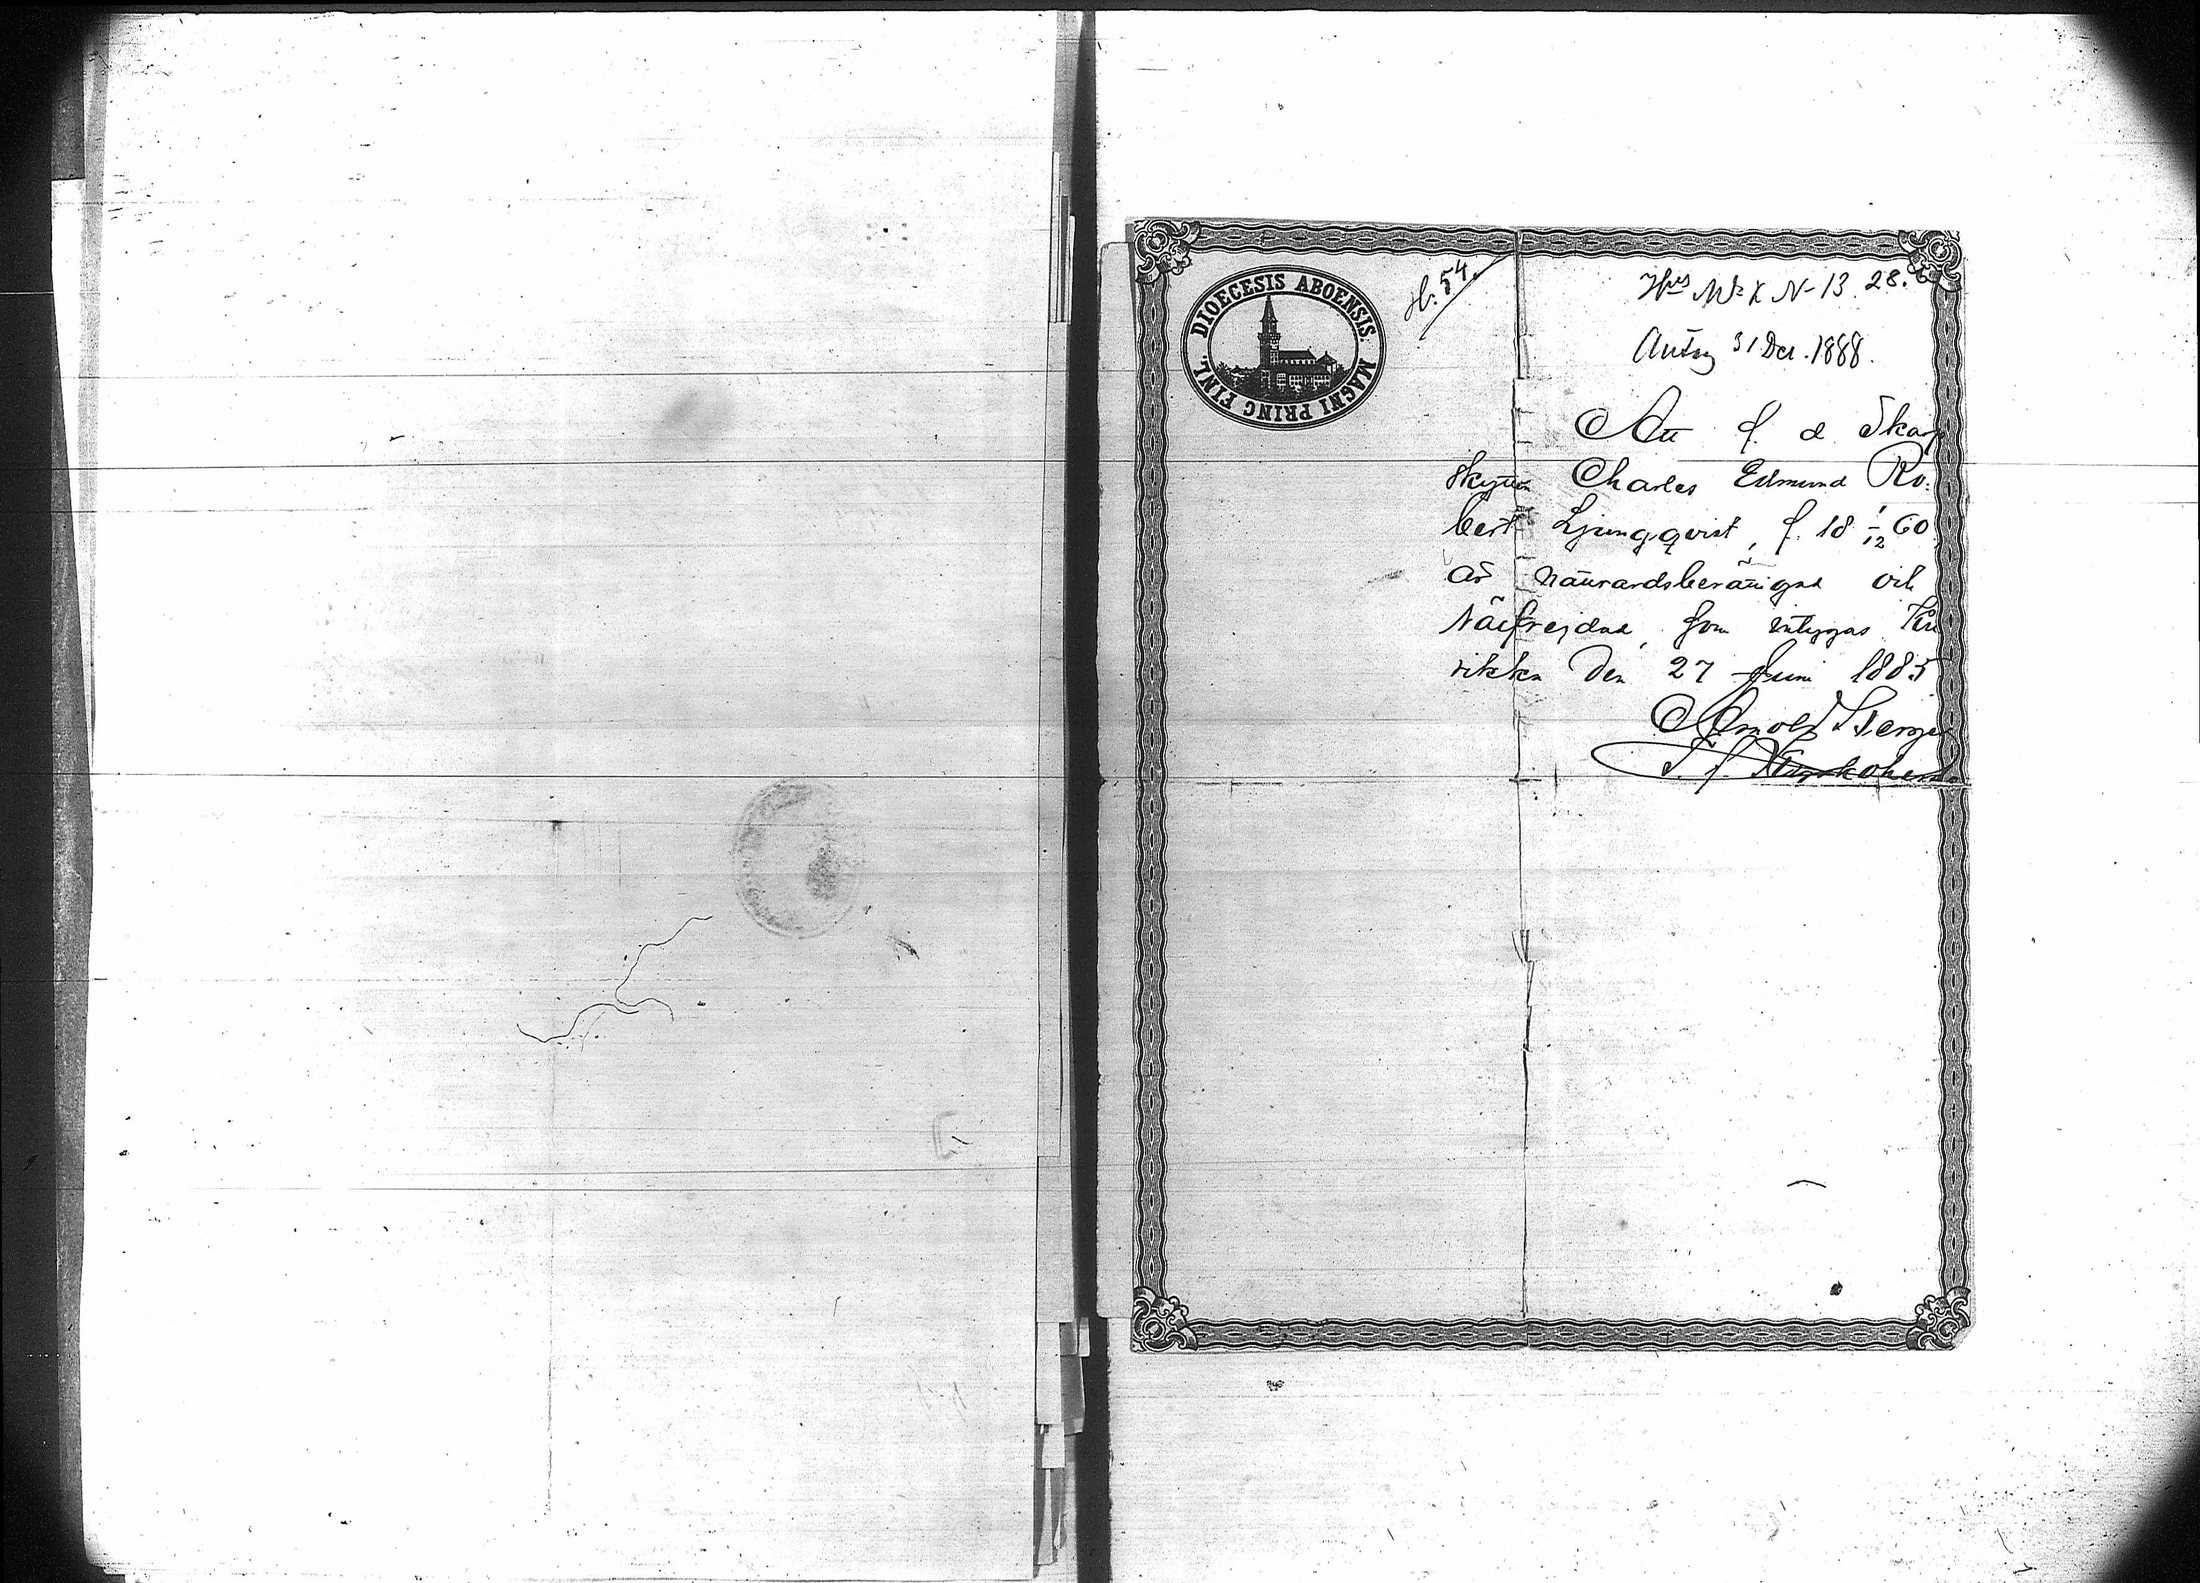 DIOECESIS ABOENSIS. MAGNI PRINC FINL.
H. 54.
N 13 28.
31 Dec. 1888.
Att f. d. Skarp
skytten Charles Edmund Ro:
bert Ljungqvist, f. 18 1/12 60
är nattvardsberättigad och
välfrejdad, som intygas Ku
rikka den 27 Juni 1885
Arnold
T. f. Kyrkoherde